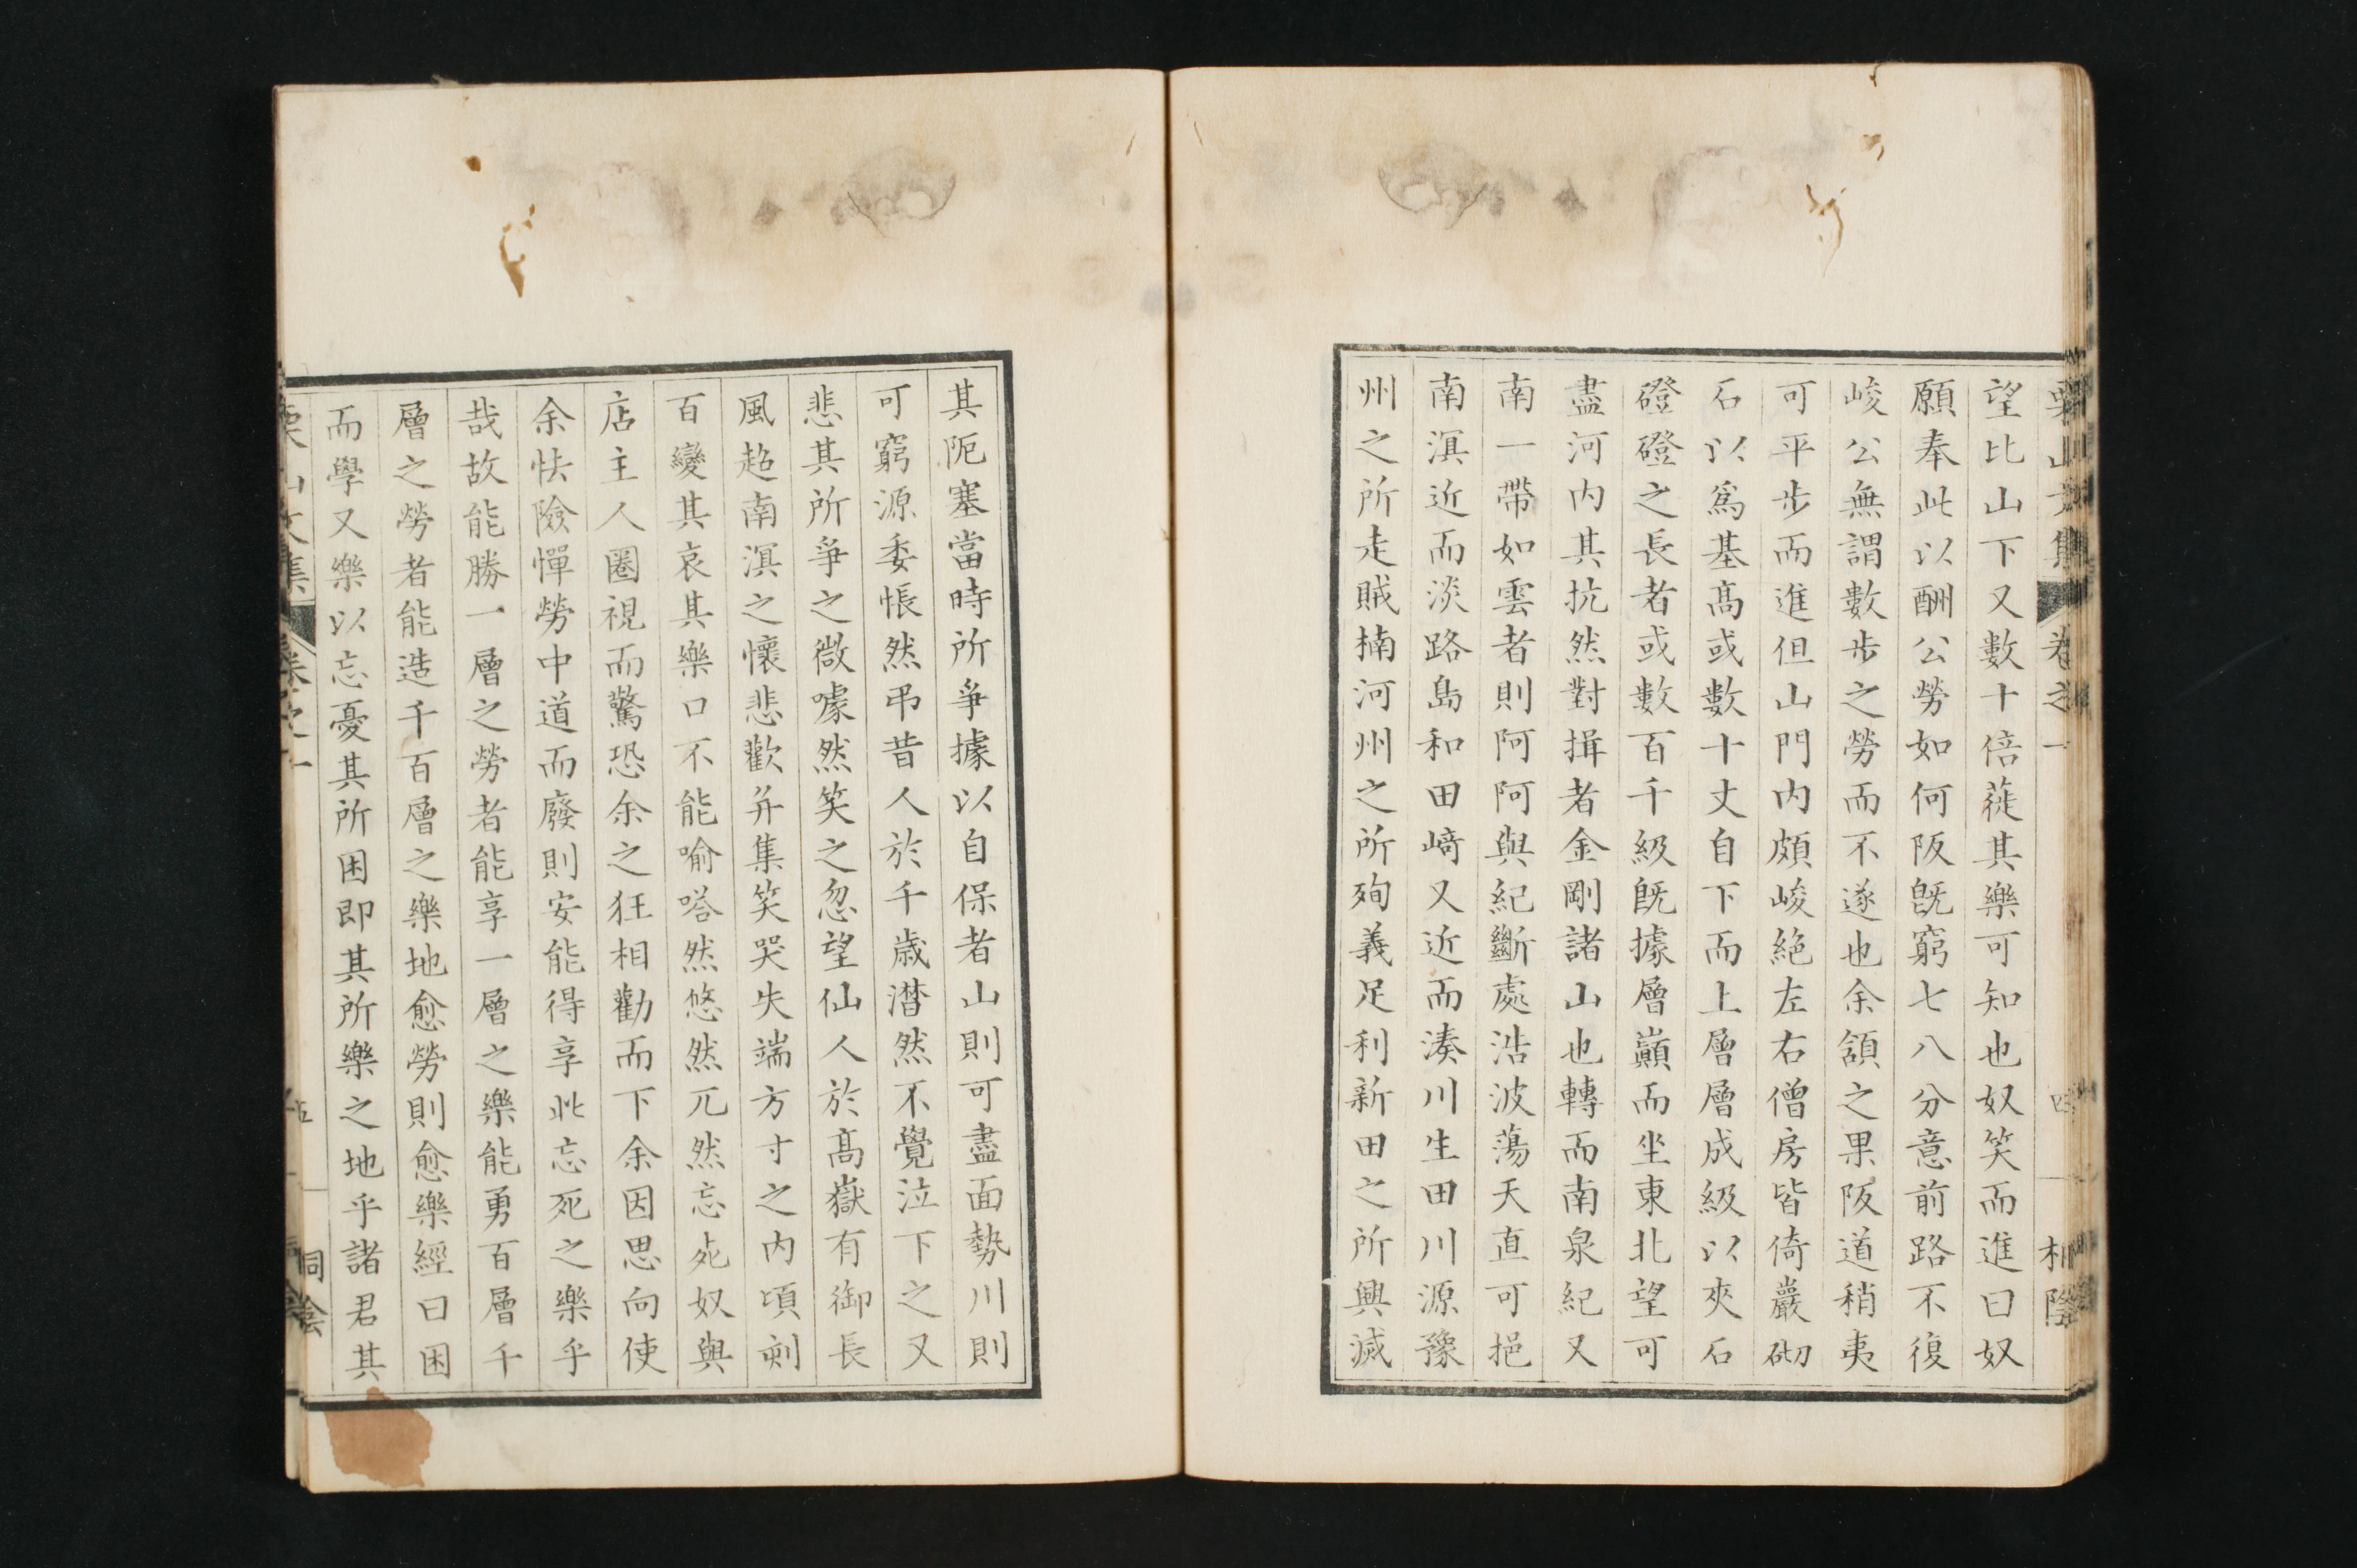 望比山下又數十倍蓰其樂可知也奴笑而進曰奴
願奉此以酬公勞如何阪既窮七八分意前路不復
峻公無謂數步之勞而不遂也余頷之果阪道稍夷
可平步而進但山門内頗峻絶左右僧房皆倚巖砌
石以爲基髙或數十丈自下而上層層成級以夾石
磴磴之長者或數百千級既據層巔而坐東北望可
盡河内其抗然對揖者金剛諸山也轉而南泉紀又
南一帶如雲者則阿阿與紀斷處浩波蕩天直可挹
南溟近而淡路島和田﨑又近而湊川生田川源豫
州之所走賊楠河州之所殉義足利新田之所興滅
其阨塞當時所爭據以自保者山則可盡面勢川則
可窮源委悵然弔昔人於千歳潸然不覺泣下之又
悲其所爭之微噱然笑之忽望仙人於髙嶽有御長
風超南溟之懷悲歡并集笑哭失端方寸之内頃刻
百變其哀其樂口不能喻嗒然悠然兀然忘死奴與
店主人圈視而驚恐余之狂相勸而下余因思向使
余怯險憚勞中道而廢則安能得享此忘死之樂乎
哉故能勝一層之勞者能享一層之樂能勇百層千
層之勞者能造千百層之樂地愈勞則愈樂經曰困
而學又樂以忘憂其所困即其所樂之地乎諸君其